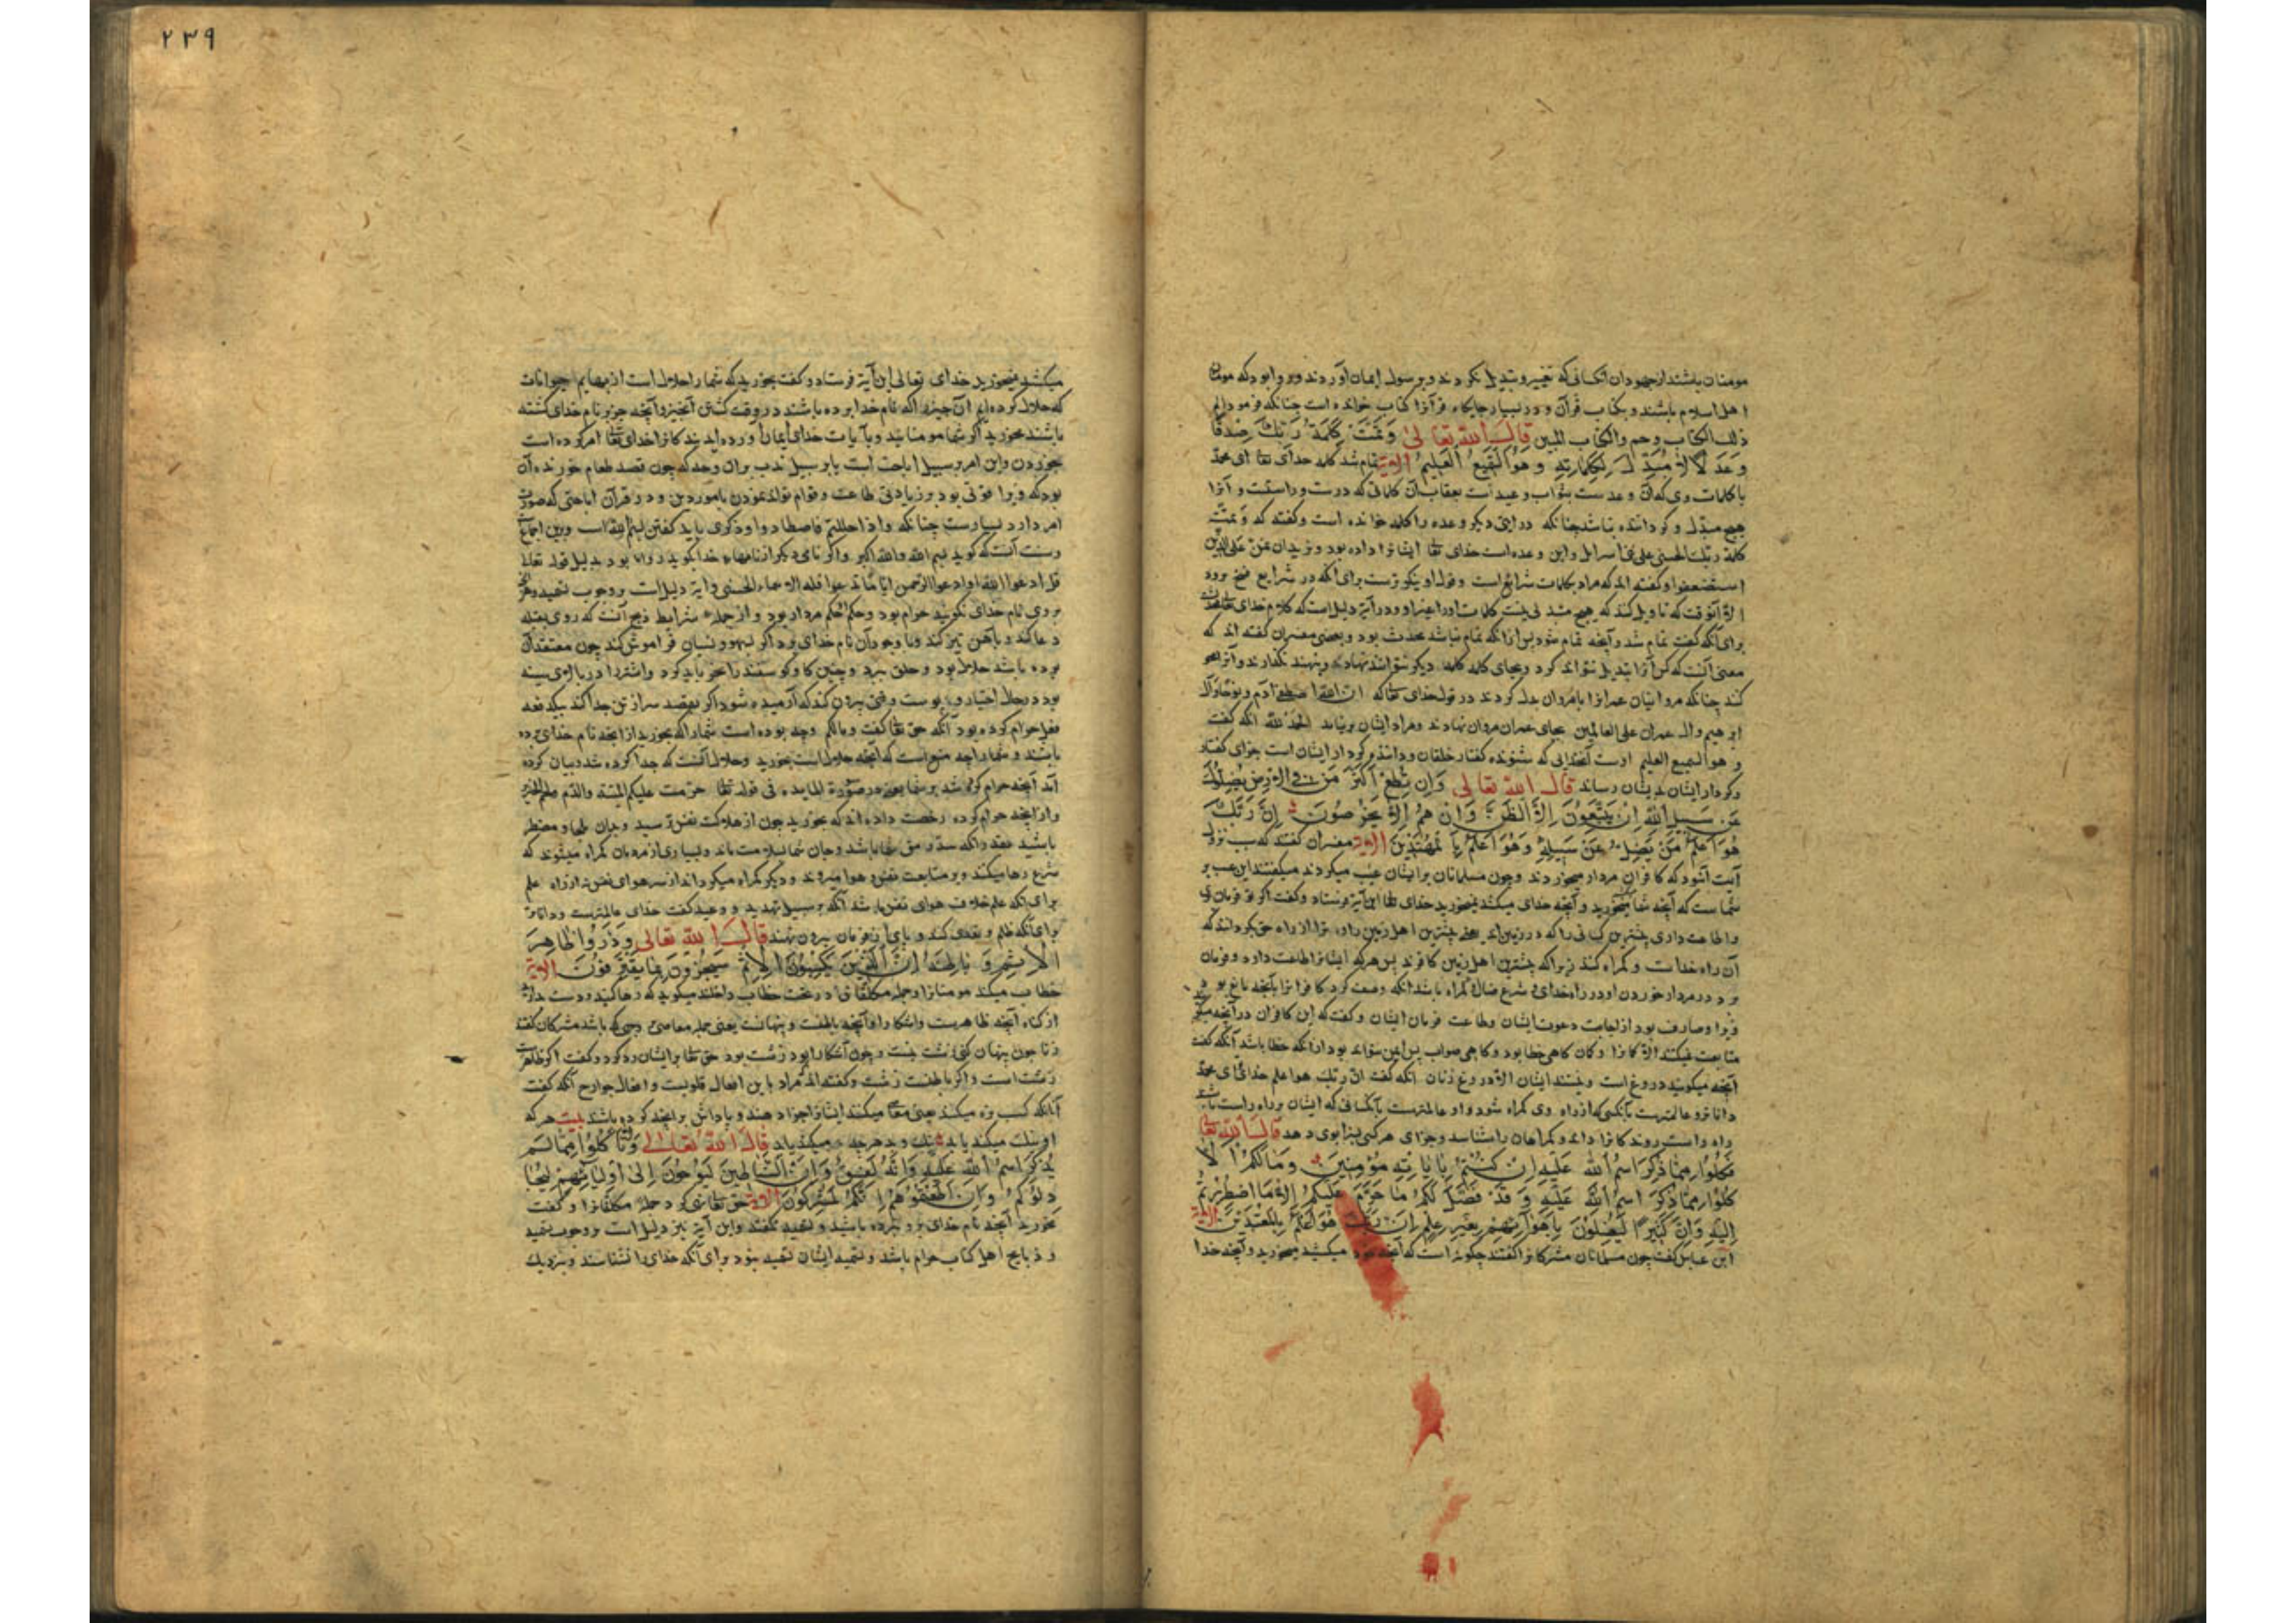 مومنان باشند از جهودان انکسانی که تغییر و تبدیل نکردند و برسول ایمان آوردند و روا بود که مومنان
اهل اسلام باشند و بکتاب قرآن و در بسیار جایگاه قرآنرا کتاب خوانده است چنانکه فرمود الم
ذلک الکتاب وحم والکتاب المبین قال الله تعالی وَتَمَّتْ کَلِمَةُ رَبِّکَ صِدْقًا
وَعَدْلًا لَا مُبَدِّلَ لِکَلِمَاتِهِ وَهُوَ السَّمِیعُ الْعَلِیمُ الآیة تمام شد کلمه خدای تعا ای محمد
با کلمات وی که آن وعدست بثواب و وعید است بعقاب آن کلماتی که درست و راستست و آنرا
هیچ مبدل و گرداننده نباشد چنانکه در ایتی دیگر وعده را کلمه خوانده است و گفته که وَتمّت
کلمة ربک الحسنی علی بنی اسرائیل و این وعده است خدای تعا ایشانرا داده بود و نرید ان نمن علی الذین
استضعفوا و گفته اند که مراد بکلمات شرائع است و قول او نیکوترست برای آنکه در شرایع نسخ برود
الا آنوقت که تاویل کند که هیچ مبدلی نیست کلمات او را غیر او و در آیة دلیل است که کلام خدای تعا محدث
برای آنکه گفت تمام شد و آنچه تمام شود پس از آنکه تمام نباشد محدث بود و بعضی مفسران گفته اند که
معنی آنست که کس آنرا تبدیل نتواند کرد و بجای کلمه کلمه دیگر نتوانند نهاد و بنهند نگذارند و آنرا محو
کند چنانکه مروانیان عمرانرا بامروان بدل کردند در قول خدای تعا که ان الله اصطفی آدم و نوحا و آل
ابرهیم وال عمران علی العالمین بجای عمران مروان نهادند و مراد ایشان برنیامد الحمد لله انکه گفت
و هو السمیع العلیم اوست آنخدایی که شنونده گفتار خلقان و داننده کردار ایشان است جزای گفتار
و کردار ایشان بدیشان رساند قال الله تعالی وَاِنْ تُطِعْ اَکْثَرَ مَنْ فِی الْاَرْضِ یُضِلُّوکَ
عَنْ سَبِیلِ اللهِ اِنْ یَتَّبِعُونَ اِلَّا الظَّنَّ وَاِنْ هُمْ اِلَّا یَخْرُصُونَ اِنَّ رَبَّکَ
هُوَ اَعْلَمُ مَنْ یَضِلُّ عَنْ سَبِیلِهِ وَهُوَ اَعْلَمُ بِالْمُهْتَدِینَ الآیة مفسران گفتند که سبب نزول
آیت آنبود که کافران مردار میخوردند و چون مسلمانان بر ایشان عیب میکردند میگفتند این عیب بر
شما ست که آنچه شما میکشید میخورید و آنچه خدای میکشد نمیخورید خدای تعا این آیة فرستاد و گفت اگر تو فرمان بری
و طاعت داری بیشترین کسانی را که در زمین اند یعنی بیشترین اهل زمین را ترا از راه حق بگردانند که
آن راه خداست و گمراه کنند زیرا که بیشترین اهل زمین کافرند پس هر که ایشانرا اطاعت دارد و فرمان
برد در مردار خوردن او در راه خدای و شرع ضال و گمراه باشد انکه وصف کرد کافرانرا بآنچه مانع بود
ویرا و صارف بود از اجابت دعوت ایشان و طاعت فرمان ایشان و گفت که این کافران در آنچه میگویند
متابعت نمیکنند الا گمانرا و گمان گاهی خطا بود و گاهی صواب پس ایمن نتواند بود از آنکه خطا باشد آنکه گفت
آنچه میگویند دروغ است و نیستند ایشان الا دروغ زنان انکه گفت ان ربک هو اعلم خدای تو ای محمد
داناتر و عالمترست بآنکس که از راه وی گمراه شود و او عالمترست بآنکسانی که ایشان بر راه راست باشند
راه راست روندگانرا داند و گمراهان را شناسد و جزای هر کسی بسزا بوی دهد قال الله تعا
فَکُلُوا مِمَّا ذُکِرَ اسْمُ اللهِ عَلَیْهِ اِنْ کُنْتُمْ بِآیَاتِهِ مُؤْمِنِینَ وَمَا لَکُمْ اَلَّا
تَأْکُلُوا مِمَّا ذُکِرَ اسْمُ اللهِ عَلَیْهِ وَقَدْ فَصَّلَ لَکُمْ مَا حَرَّمَ عَلَیْکُمْ اِلَّا مَا اضْطُرِرْتُمْ
اِلَیْهِ وَاِنَّ کَثِیرًا لَیُضِلُّونَ بِاَهْوَآئِهِمْ بِغَیْرِ عِلْمٍ اِنَّ رَبَّکَ هُوَ اَعْلَمُ بِالْمُعْتَدِینَ الآیة
ابن عباس گفت چون مسلمانان مشرکانرا گفتند چگونه است که آنچه خود میکشید میخورید و آنچه خدا
۲۳۹
میکشد نمیخورید خدای تعالی این آیة فرستاد و گفت بخورید که شما را حلال است از بهایم حیوانات
که حلال کرده ایم آن چیزرا که نام خدا برده باشند در وقت کشتن آنچیز و آنچه جز بر نام خدای کشته
باشند مخورید اگر شما مومنانید و بآیات خدای ایمان آورده اید بدیکانرا خدای تعا امر کرده است
بخوردن و این امر بر سبیل اباحت است یا بر سبیل ندب بران وجه که چون قصد طعام خورنده آن
بود که ویرا قوتی بود بر زیادتی طاعت و قوام تواند نمودن بامور دین و در قرآن اباحتی که صورت
امر دارد بسیارست چنانکه واذا حللتم فاصطادوا و ذکری باید گفتن بسم الله است و برین اجماع
و سنت آنست که گوید بسم الله والله اکبر و اگر نامی دیگر از نامهاء خدا بگوید روا بود بدلیل قوله تعا
قل ادعوا الله او ادعوا الرحمن ایا ما تدعوا فله الاسماء الحسنی و آیة دلیل است بر وجوب تسمیه و هر
بر وی نام خدای نگویند حرام بود و حکمش حکم مردار بود و از جمله شرایط ذبح آنست که روی بقبله
دعا کند و بآهن تیز کند و با وجود آن نام خدای برد اگر بسهو و نسیان فراموش کند چون معتقد آن
بوده باشد حلال بود و حلق ببرد و چنین گاو و گوسفند را نحر باید کرد و اشتر را در بالای سینه
بود در حال اختیار و پوست وقتی بیرون کند که آرمیده شود اگر بقصد سر از تن جدا کند بیکدفعه
فعل حرام کرده بود آنکه حق تعا گفت ومالکم وچه بوده است شما را که نخورید از انچه نام خدای برده
باشند و شما را چه منع است که آنچه حلال است نخورید و حلال آنست که جدا کرده شد و بیان کرده
آمد آنچه حرام کرده شد بر شما در صورة المایده فی قوله تعا حرمت علیکم المیتة والدم ولحم الخنزیر
واز آنچه حرام کرده رخصت داده اند که بخورید چون از هلاکت نفس ترسید و بدان مضطر
باشید بقدر آنکه سدّ رمق شما باشد و جان شما بسلامت ماند و بسیاری از مردمان گمراه میشوند که
شرع رها میکنند و بر متابعت نفس و هوا میروند و دیگر گمراه میگردانند از سر هوای نفس نه از راه علم
برای انکه علم خلاف هوای نفس باشد آنکه بر سبیل تهدید و وعید گفت خدای عالمترست و داناتر
برای آنکه ظلم و تعدی کند و پای از فرمان بیرون نهند قال الله تعالی وَذَرُوا ظَاهِرَ
الْاِثْمِ وَبَاطِنَهُ اِنَّ الَّذِینَ یَکْسِبُونَ الْاِثْمَ سَیُجْزَوْنَ بِمَا کَانُوا یَقْتَرِفُونَ الآیة
خطاب میکند مومنانرا و جمله مکلفان در تحت خطاب داخلند میگوید که رها کنید و دست بدارید
از گناه آنچه ظاهرست و آشکارا و آنچه باطنست و پنهانست یعنی جمله معاصی که باشد مشرکان گفتند
زنا چون پنهان کنی زشت نیست و چون آشکارا بود زشت بود حق تعا بر ایشان رد کرد و گفت اگر ظاهرست
زشت است و اگر باطنست زشت و گفته اند مراد باین افعال قلوبست و افعال جوارح آنکه گفت
آنانکه کسب بزه میکنند یعنی معاصی میکنند ایشانرا جزا دهند و پاداش برانچه کرده باشند بیت هر که
او نیک میکند یابد نیک و بد هر چه میکند یابد قال الله تعالی وَلَا تَأْکُلُوا مِمَّا لَمْ
یُذْکَرِ اسْمُ اللهِ عَلَیْهِ وَاِنَّهُ لَفِسْقٌ وَاِنَّ الشَّیَاطِینَ لَیُوحُونَ اِلَی اَوْلِیَآئِهِمْ لِیُجَا
دِلُوکُمْ وَاِنْ اَطَعْتُمُوهُمْ اِنَّکُمْ لَمُشْرِکُونَ الآیة حق تعا نهی کرد جمله مکلفانرا و گفت
مخورید آنچه نام خدای برو نبرده باشند و تسمیه نگفته و این آیة نیز دلیل است بر وجوب تسمیه
و ذبایح اهل کتاب حرام باشد و تسمیه ایشان تسمیه نبود برای آنکه خدای را نشناسند و بنزدیک